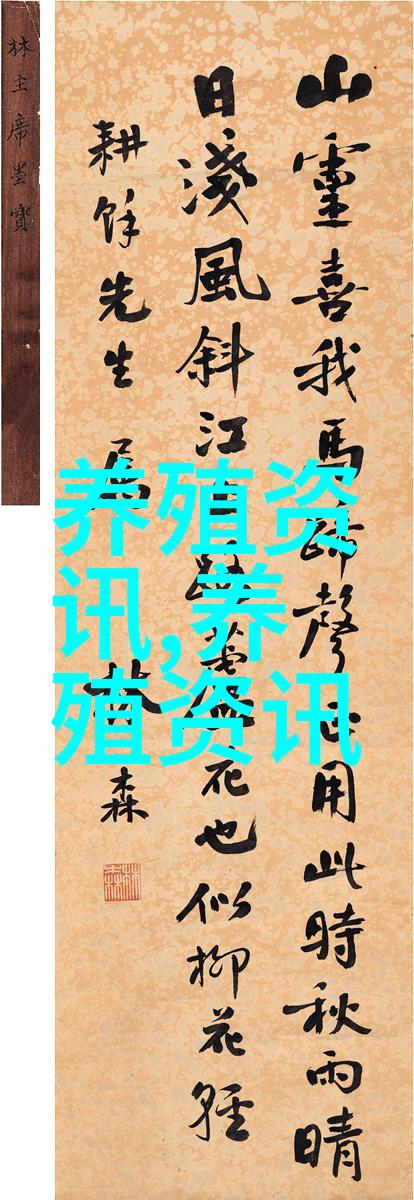 林主席墨寶
山靈喜我馬蹄聲正用此時秋雨晴
日淺風斜江自暖蘆花也似柳花輕
耕餘先生屬 林森
林森
养殖资
讯,养
殖资讯